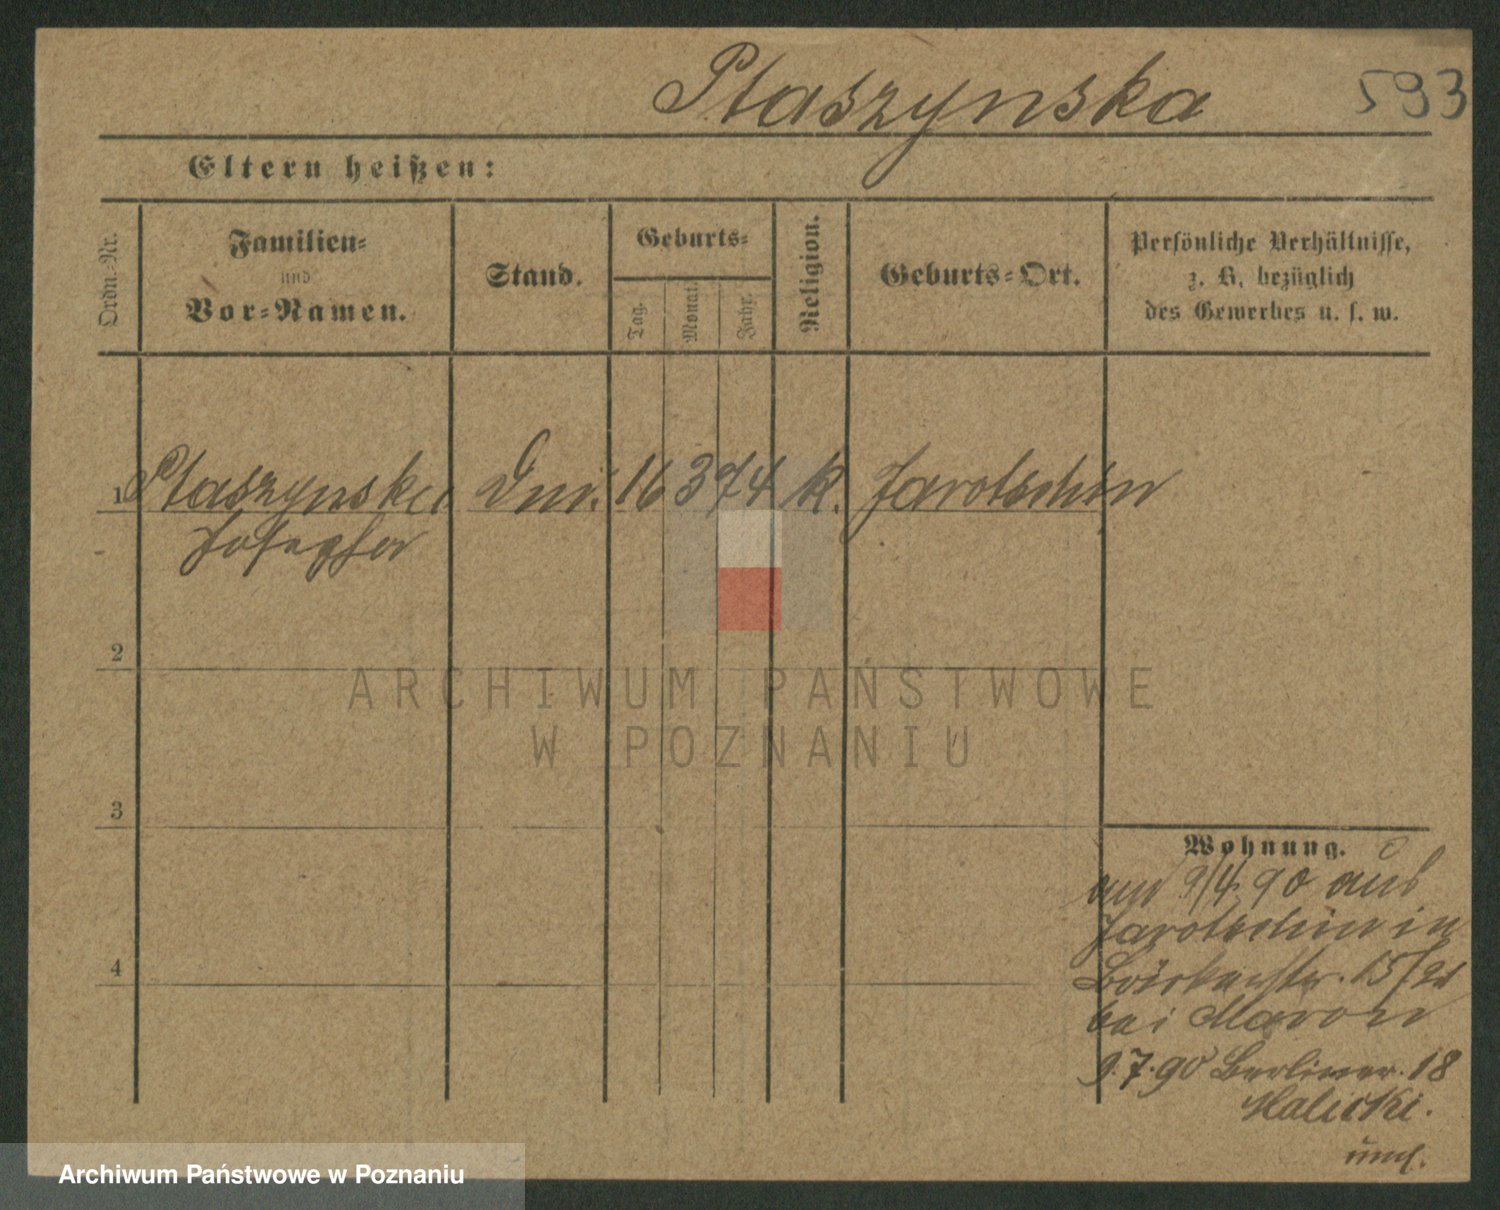 Ptaszynska 593
Eltern heißen:
Ordn.-Nr.
Familien-
und
Vor-Namen.
Stand.
Geburts-
Tag.
Monat.
Jahr.
Religion.
Geburts-Ort.
Persönliche Verhältnisse,
z. B. bezüglich
des Gewerbes u. s. w.
1 Ptaszynska 16 3 74 k. Jarotschin
Josepha
2
ARCHIWUM PAŃSTWOWE
W POZNANIU
3
Wohnung.
9/4 90 aus
Jarotschin in
15/21
4
bei
9.7.90 Berliner. 18
Malicki.
Archiwum Państwowe w Poznaniu